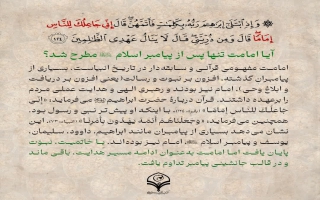 وَإِذِ ابْتَلَىٰ إِبْرَاهِيمَ رَبُّهُ بِكَلِمَاتٍ فَأَتَمَّهُنَّ قَالَ إِنِّي جَاعِلُكَ لِلنَّاسِ
إِمَامًا قَالَ وَمِن ذُرِّيَّتِي قَالَ لَا يَنَالُ عَهْدِي الظَّالِمِينَ ﴿١٢٤﴾
آیا امامت تنها پس از پیامبر اسلام ﷺ مطرح شد؟
امامت مفهومی قرآنی و سابقه‌دار در تاریخ انبیاست. بسیاری از
پیامبران گذشته، افزون بر نبوت و رسالت؛ یعنی افزون بر دریافت
و ابلاغ وحی)، امام نیز بودند و رهبری الهی و هدایت عملی مردم
را برعهده داشتند. قرآن دربارهٔ حضرت ابراهیم می‌فرماید: «إنّی
جاعلك للناس إماما» با اینکه او پیش‌تر نبی و رسول بود.
همچنین می‌فرماید: «وجعلناهم أئمة یهدون بأمرنا» این
نشان می‌دهد بسیاری از پیامبران مانند ابراهیم، داوود، سلیمان،
یوسف و پیامبر اسلام ﷺ امام نیز بوده‌اند. با خاتمیت، نبوت
پایان یافت اما امامت به‌عنوان ادامه مسیر هدایت، باقی ماند
و در قالب جانشینی پیامبر تداوم یافت.